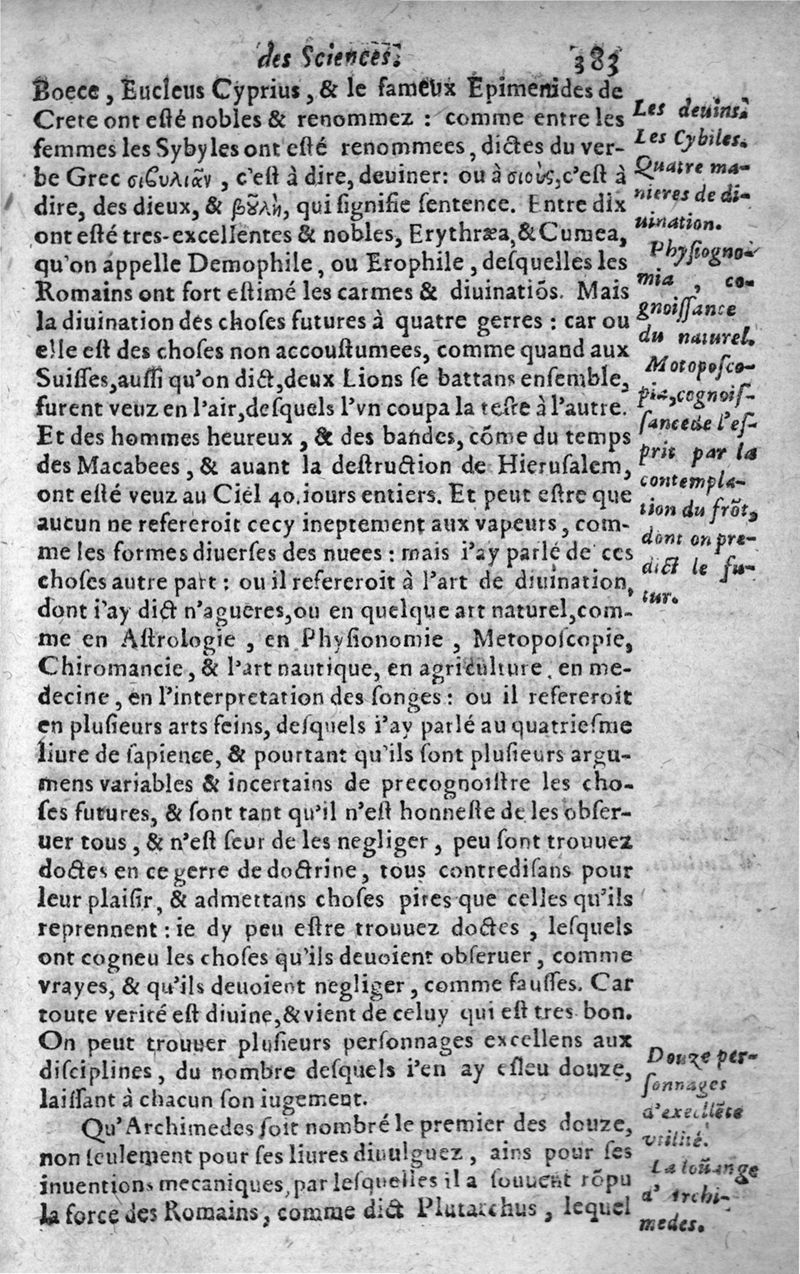 des Sciences. 383
Boece, Eucleus Cyprius, & le fameux Epimenides de
Crete ont eſté nobles & renommez : comme entre les
femmes les Sybyles ont eſté renommees, dictes du ver-
be Grec σιϐυλιᾶν, c'eſt à dire, deuiner: ou à σιοὺς, c'eſt à
dire, des dieux, & βȣλὴ, qui ſignifie ſentence. Entre dix
ont eſté tres-excellentes & nobles, Erythræa, & Cumea,
qu'on appelle Demophile, ou Erophile, deſquelles les
Romains ont fort eſtimé les carmes & diuinatiõs. Mais
la diuination des choſes futures à quatre gerres : car ou
elle eſt des choſes non accouſtumees, comme quand aux
Suiſſes, auſſi qu'on dict, deux Lions ſe battans enſemble,
furent veuz en l'air, deſquels l'vn coupa la teſte à l'autre.
Et des hommes heureux, & des bandes, cõme du temps
des Macabees, & auant la deſtruction de Hieruſalem,
ont eſté veuz au Ciel 40. iours entiers. Et peut eſtre que
aucun ne refereroit cecy ineptement aux vapeurs, com-
me les formes diuerſes des nuees : mais i'ay parlé de ces
choſes autre part : ou il refereroit à l'art de diuination,
dont i'ay dict n'agueres, ou en quelque art naturel, com-
me en Aſtrologie, en Phyſionomie, Metopoſcopie,
Chiromancie, & l'art nautique, en agriculture, en me-
decine, en l'interpretation des ſonges : ou il refereroit
en pluſieurs arts feins, deſquels i'ay parlé au quatrieſme
liure de ſapience, & pourtant qu'ils ſont pluſieurs argu-
mens variables & incertains de precognoiſtre les cho-
ſes futures, & ſont tant qu'il n'eſt honneſte de les obſer-
uer tous, & n'eſt ſeur de les negliger, peu ſont trouuez
doctes en ce gerre de doctrine, tous contrediſans pour
leur plaiſir, & admettans choſes pires que celles qu'ils
reprennent : ie dy peu eſtre trouuez doctes, leſquels
ont cogneu les choſes qu'ils deuoient obſeruer, comme
vrayes, & qu'ils deuoient negliger, comme fauſſes. Car
toute verité eſt diuine, & vient de celuy qui eſt tres bon.
On peut trouuer pluſieurs perſonnages excellens aux
diſciplines, du nombre deſquels i'en ay eſleu douze,
laiſſant à chacun ſon iugement.
Qu'Archimedes ſoit nombré le premier des douze,
non ſeulement pour ſes liures diuulguez, ains pour ſes
inuentions mecaniques, par leſquelles il a ſouuent rõpu
la force des Romains, comme dict Plutarchus, lequel
Les deuins.
Les Cybiles.
Quatre ma-
nieres de di-
uination.
Phyſiogno-
mia, co-
gnoiſſance
du naturel.
Motopoſco-
pia, cognoiſ-
ſance de l'eſ-
prit par la
contempla-
tion du frõt,
dont on pre-
dict le fu-
tur.
Douze per-
ſonnages
d'excellẽte
vtilité.
La loüange
d'Archi-
medes.